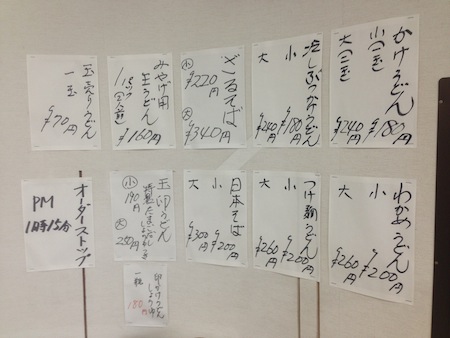 かけうどん
小(一玉) ¥180円
大(二玉) ¥240円
冷しぶっかけうどん
小 ¥180円
大 ¥240円
ざるそば
小 ¥220円
大 ¥340円
みやげ用
玉うどん
¥160円
玉売りうどん
一玉 ¥70円
わかめうどん
小 ¥200円
大 ¥260円
つけ麺うどん
小 ¥200円
大 ¥260円
日本そば
小 ¥200円
大 ¥300円
小 190円
大 250円
180円
オーダーストップ
PM